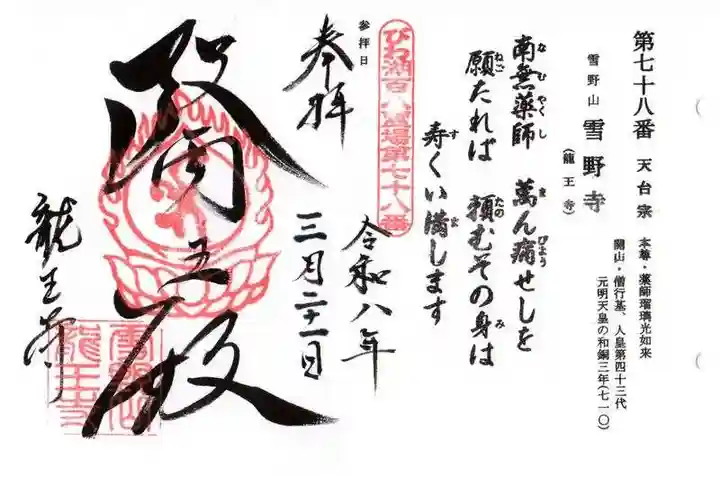 第七十八番 天台宗
雪野山 雪野寺
(龍王寺)
本尊・薬師瑠璃光如来
開山・僧行基、人皇第四十三代
元明天皇の和銅三年(七一〇)
南無薬師 萬ん病せしを
なむやくし まびょう
願たれば 頼むその身は
ねご たの み
寿くい満します
す ま
びわ湖百八霊場第七十八番
参拝日
奉拝
令和八年
三月二十一日
龍王寺